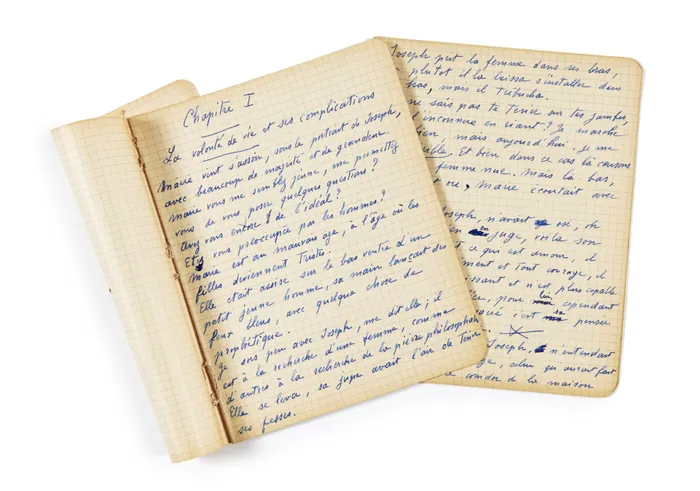 Chapitre I
La volonté de vie et ses complications
Marie vint s'asseoir, sous le portrait de Joseph,
avec beaucoup de majesté et de grandeur.
Marie vous me semblez jeune, me permettez
vous de vous poser quelques questions?
Avez vous encore de l'idéal?
Etes vous préoccupée par les hommes?
Marie est au mauvais age, à l'âge où les
filles deviennent tristes.
Elle était assise sur le bas ventre d'un
petit jeune homme, sa main lançait des
feux bleus, avec quelque chose de
prophétique.
Je sors peu avec Joseph, me dit elle; il
est à la recherche d'une femme, comme
d'autres à la recherche de la pierre philosophale
Elle se leva, sa jupe avait l'air de tenir
ses fesses.
Joseph prit la femme dans ses bras,
plutot il la laissa s'installer dans
bras, mais il trébucha.
ne sais pas te tenir sur tes jambes,
l'inconnue en riant? Je marche
bien, mais aujourd'hui. je me
Et bien dans ce cas là causons
femme nue. Mais là-bas,
Marie écoutait avec
Joseph, n'avait osé, oh
juge, voilà son
ce qui est amour, il
ment et tout courage, il
issant et n'est plus capable
pour cependant
c'est pensée
Joseph, n'entendant
celui qui aurait fait
corridor de la maison